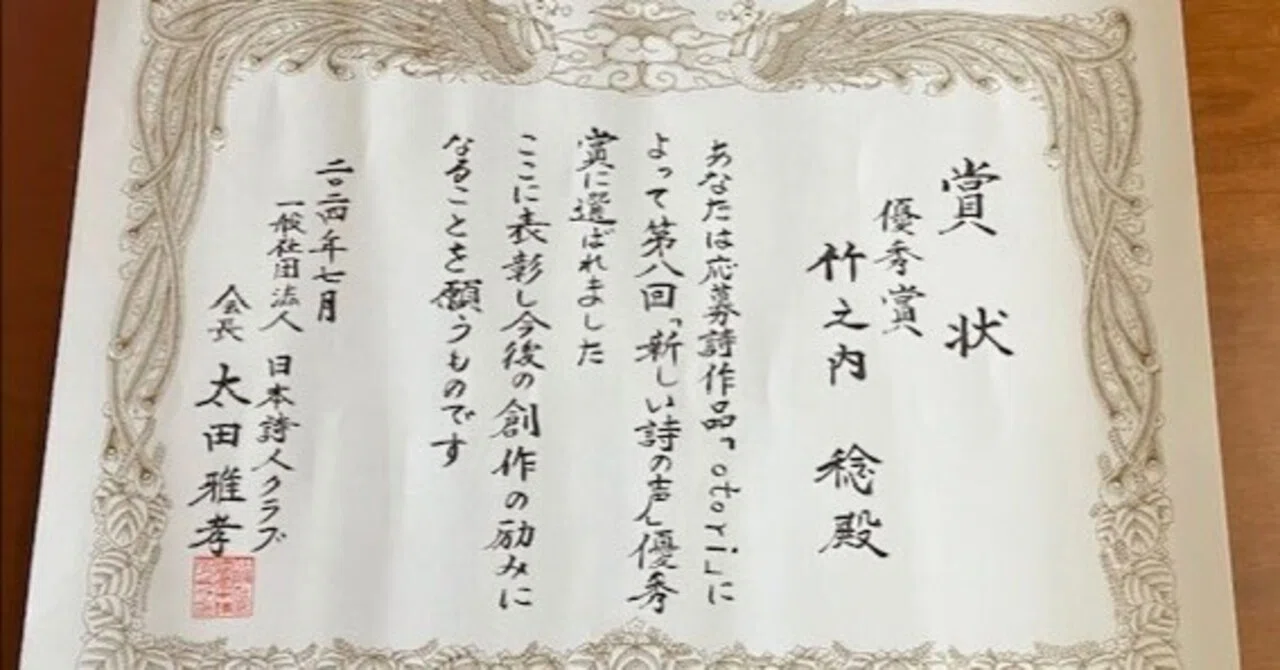 賞状
優秀賞
竹之内 稔殿
あなたは応募詩作品「otori」に
よって第八回「新しい詩の声」優秀
賞に選ばれました
ここに表彰し今後の創作の励みに
なることを願うものです
二〇二四年七月
一般社団法人 日本詩人クラブ
会長 太田雅孝